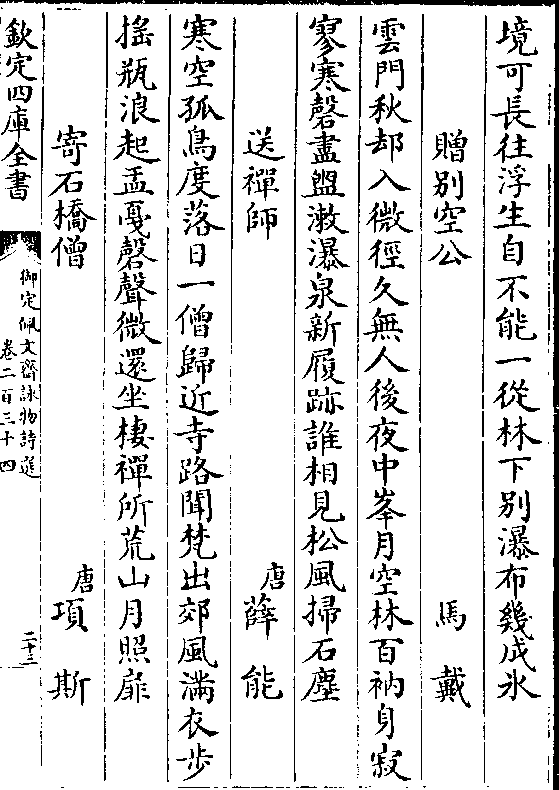 境可長往浮生自不能一從林下別瀑布幾成氷
贈別空公　馬戴
雲門秋却入微徑久無人後夜中峯月空林百衲身寂
寥寒磬盡盥漱瀑泉新履跡誰相見松風掃石塵
送禪師　唐薛能
寒空孤鳥度落日一僧歸近寺路聞梵出郊風滿衣步
搖瓶浪起盂戞磬聲微還坐棲禪所荒山月照扉
寄石橋僧　唐項斯
欽定四庫全書
御定佩文齋詠物詩選
卷二百三十四
二十三